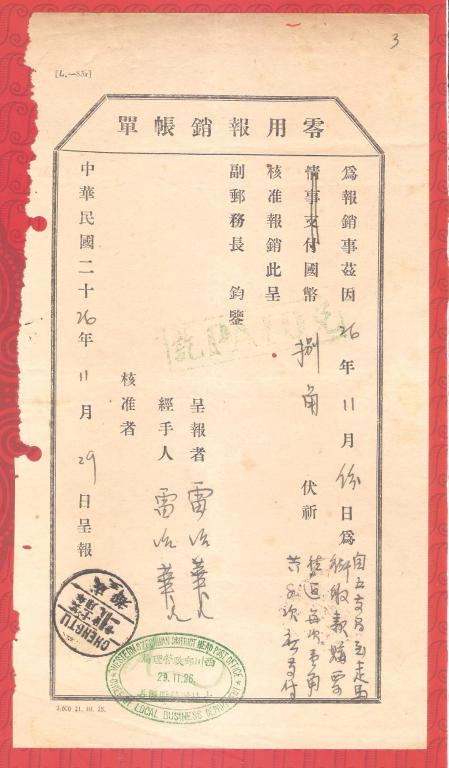 3
[L.—85r]
零用報銷帳單
爲報銷事茲因 26 年 11 月 份 日爲
自五
街收款購票
往返每次壹角
共 次 支付
情事支付國幣 捌角 伏祈
核准報銷此呈
副郵務長 鈞鑒
PAID
呈報者 雷治華
經手人 雷治華
核准者
中華民國二十26年 11 月 29 日呈報
CHENGTU
WESTERN SZECHWAN DISTRICT HEAD POST OFFICE
西川郵政管理局
29.11.26.
LOCAL BUSINESS
2,000 21. III. 25.